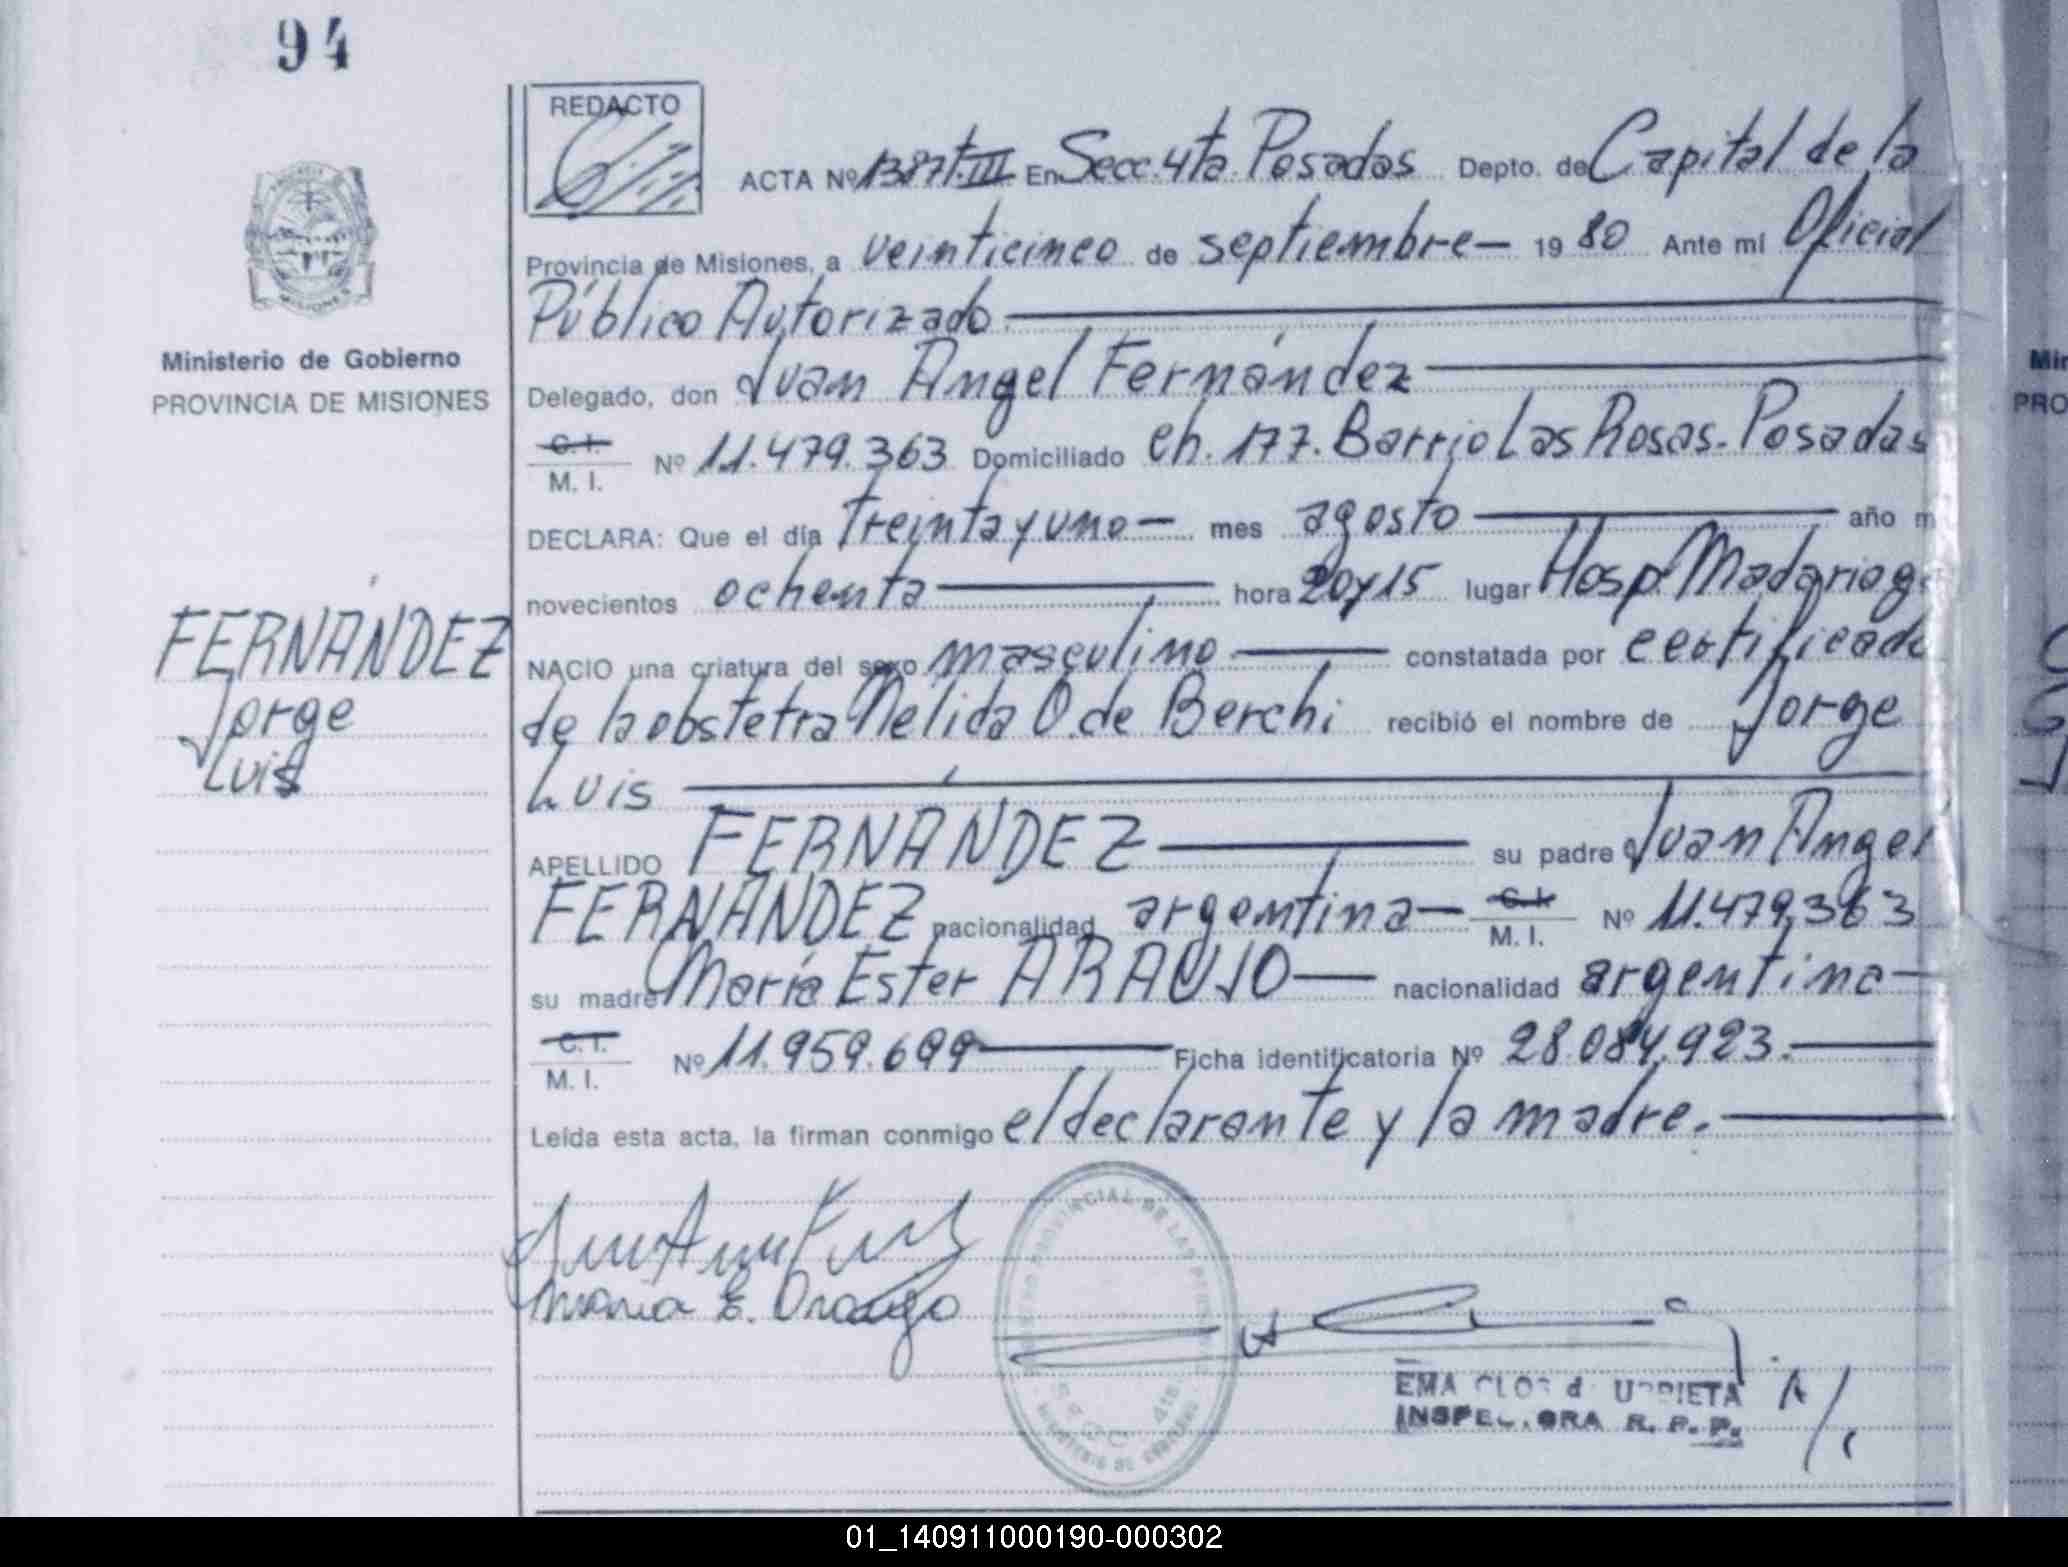 94
REDACTO
ACTA Nº 1387 t. III En Secc. 4ta. Posadas Depto. de Capital de la
Provincia de Misiones, a veinticinco de septiembre — 19 80 Ante mí Oficial
Público Autorizado.
Ministerio de Gobierno
PROVINCIA DE MISIONES
Delegado, don Juan Angel Fernández
C. I.
M. I. Nº 11.479.363 Domiciliado ch. 177. Barrio Las Rosas. Posadas
DECLARA: Que el día treinta y uno — mes agosto — año m
novecientos ochenta — hora 20 y 15 lugar Hosp. Madariaga
FERNÁNDEZ
Jorge
Luis
NACIO una criatura del sexo masculino — constatada por certificado
de la obstetra Nélida O. de Berchi recibió el nombre de Jorge
Luis
APELLIDO FERNÁNDEZ — su padre Juan Angel
FERNÁNDEZ nacionalidad argentina — C. I.
M. I. Nº 11.479.363
su madre María Ester ARAUJO — nacionalidad argentina —
C. I.
M. I. Nº 11.959.699 — Ficha identificatoria Nº 28.084.923. —
Leída esta acta, la firman conmigo el declarante y la madre. —
Maria E. Araujo
PROVINCIAL DE LAS
EMA CLOS d URRIETA
INSPECTORA R. P. P.
MISIONES
Min
PRO
01_140911000190-000302